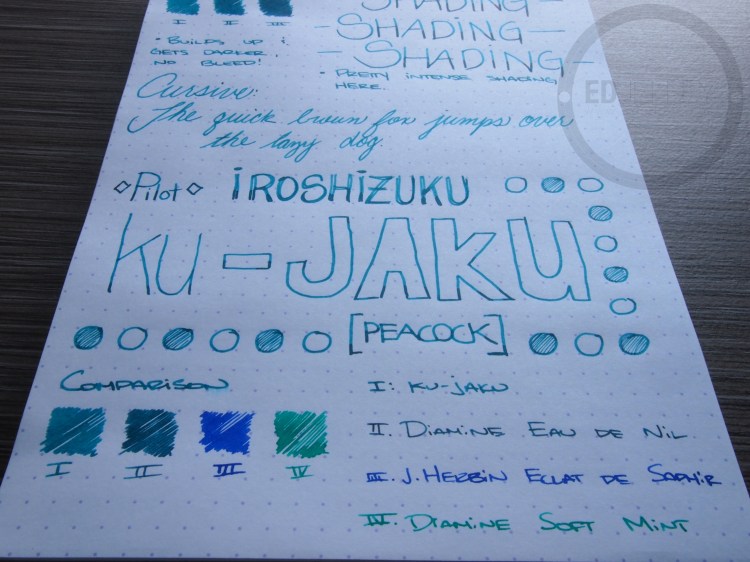 SHADING
I II III
- SHADING -
- SHADING -
• BUILDS UP &
GETS DARKER.
NO BLEED!
• PRETTY INTENSE SHADING
HERE.
Cursive:
The quick brown fox jumps over
the lazy dog.
◇Pilot◇ iROSHiZUKU
KU-JAKU
[PEACOCK]
COMPARISON
I II III IV
I: KU-JAKU
II. DIAMINE EAU DE NIL
III. J. HERBIN ECLAT DE SAPHIR
IV. DIAMINE SOFT MINT
ED